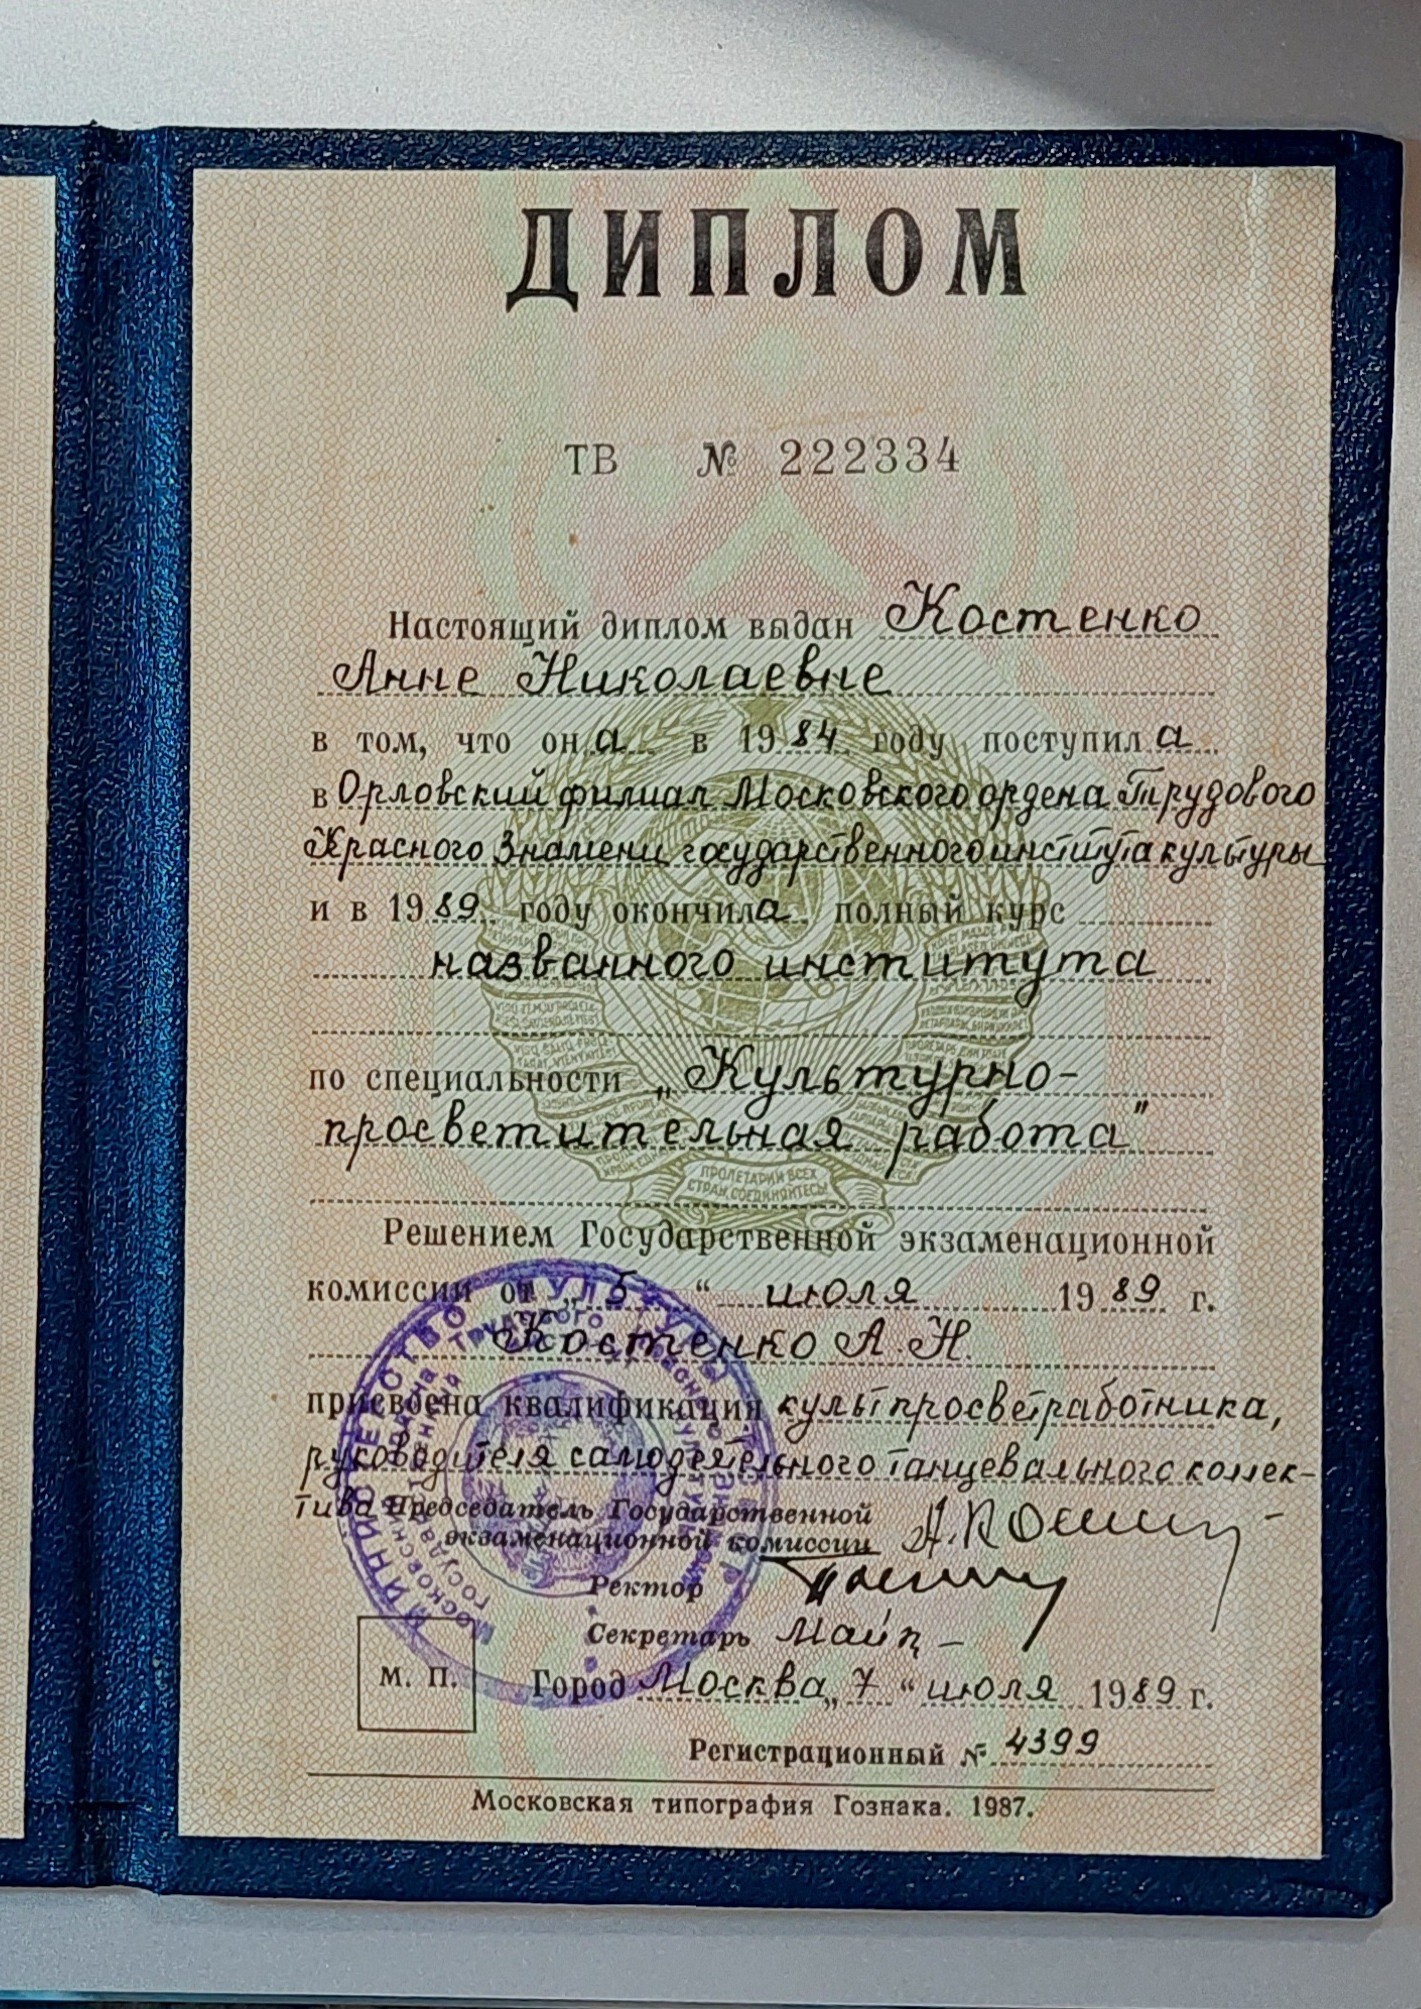 ДИПЛОМ
ТВ № 222334
Настоящий диплом выдан Костенко
Анне Николаевне
в том, что она в 1984 году поступила
в Орловский филиал Московского ордена Трудового
Красного Знамени государственного института культуры
и в 1989 году окончила полный курс
названного института
по специальности „Культурно-
просветительная работа"
ПРОЛЕТАРИИ ВСЕХ
СТРАН, СОЕДИНЯЙТЕСЬ!
Решением Государственной экзаменационной
комиссии от „5“ июля 1989 г.
Костенко А. Н.
присвоена квалификация культпросветработника,
руководителя самодеятельного танцевального коллек-
тива Председатель Государственной
экзаменационной комиссии
Ректор
Секретарь
М. П. Город Москва „7“ июля 1989 г.
Регистрационный № 4399
Московская типография Гознака. 1987.